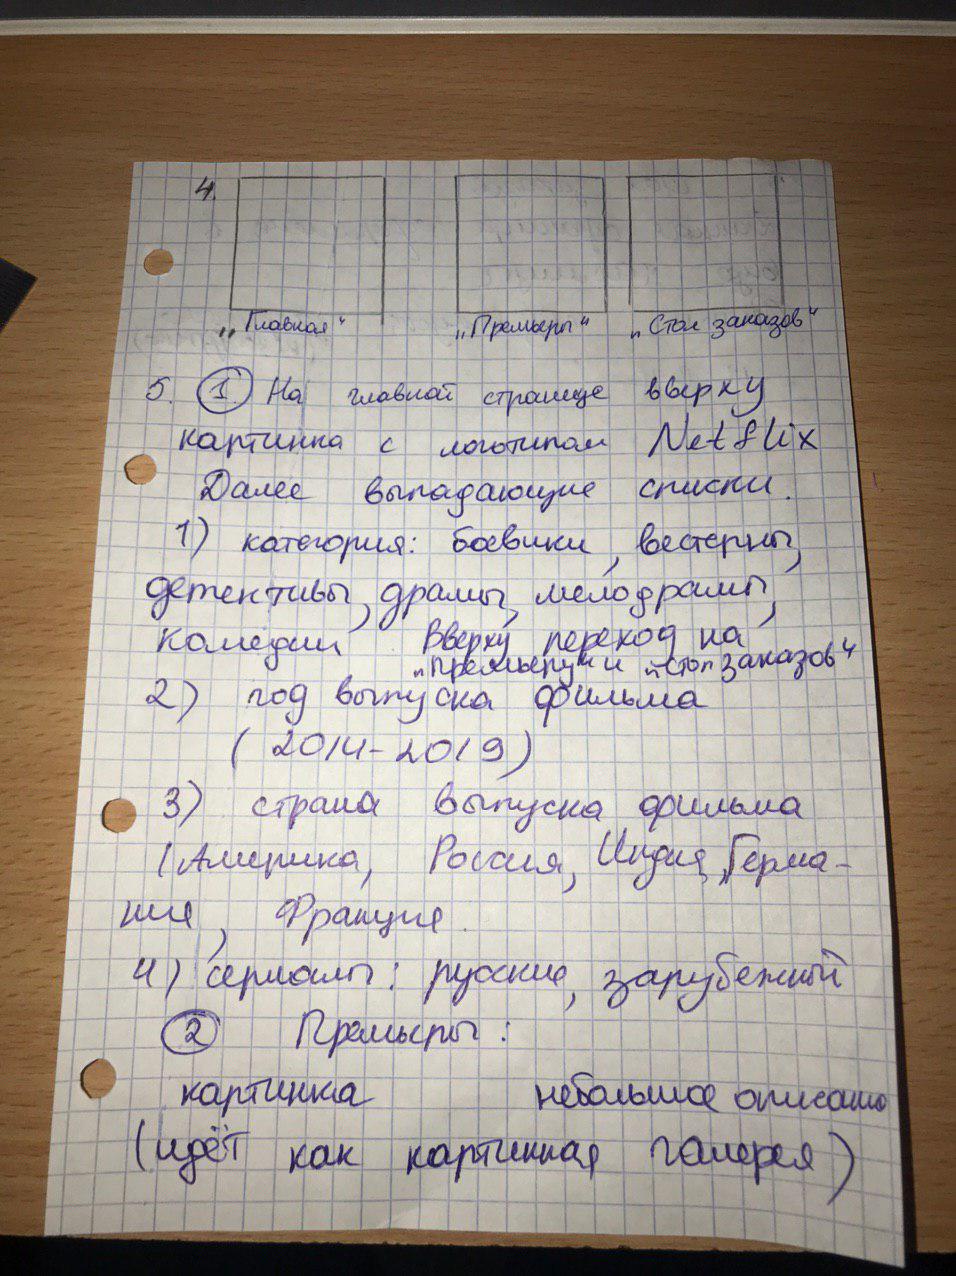 4.
„Главная“ „Премьеры“ „Стол заказов“
5. 1. На главной странице вверху
картинка с логотипом Netflix
Далее выпадающие списки.
1) категория: боевики, вестерны,
детективы, драмы, мелодрамы,
комедии Вверху переход на
„премьеры“ и „стол заказов“
2) год выпуска фильма
(2014-2019)
3) страна выпуска фильма
(Америка, Россия, Индия, Герма-
ния, Франция
4) сериалы: русские, зарубежный
2 Премьеры:
картинка небольшое описание
(идёт как картинная галерея)